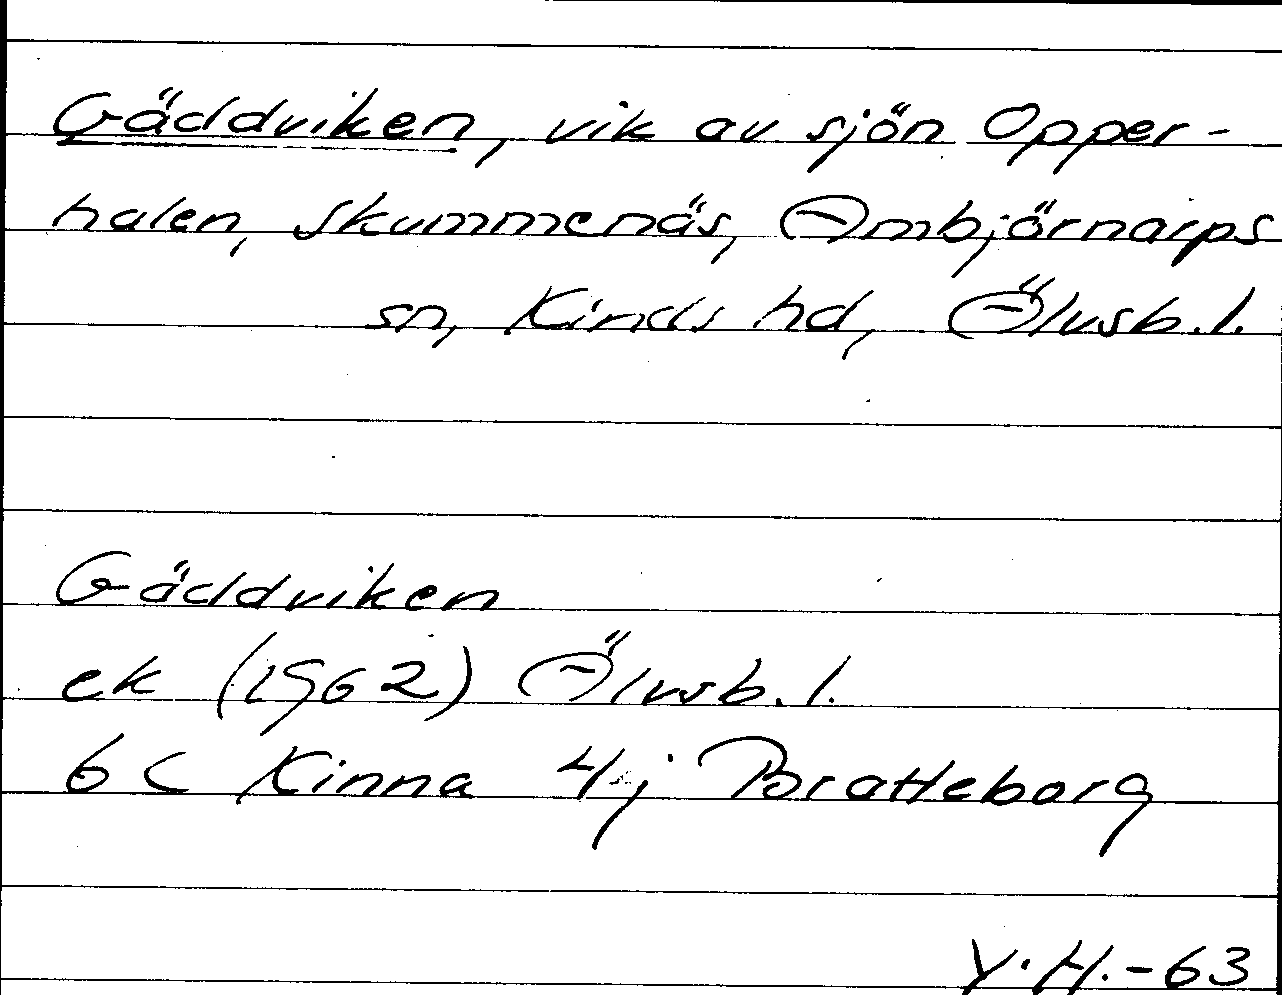 Gäddviken, vik av sjön Opper-
halen, Skummenäs, Ambjörnarps
sn, Kinds hd, Älvsb. l.
Gäddviken
ek (1962) Älvsb. l.
6 C Kinna 4 j Bratteborg
Y. H. - 63